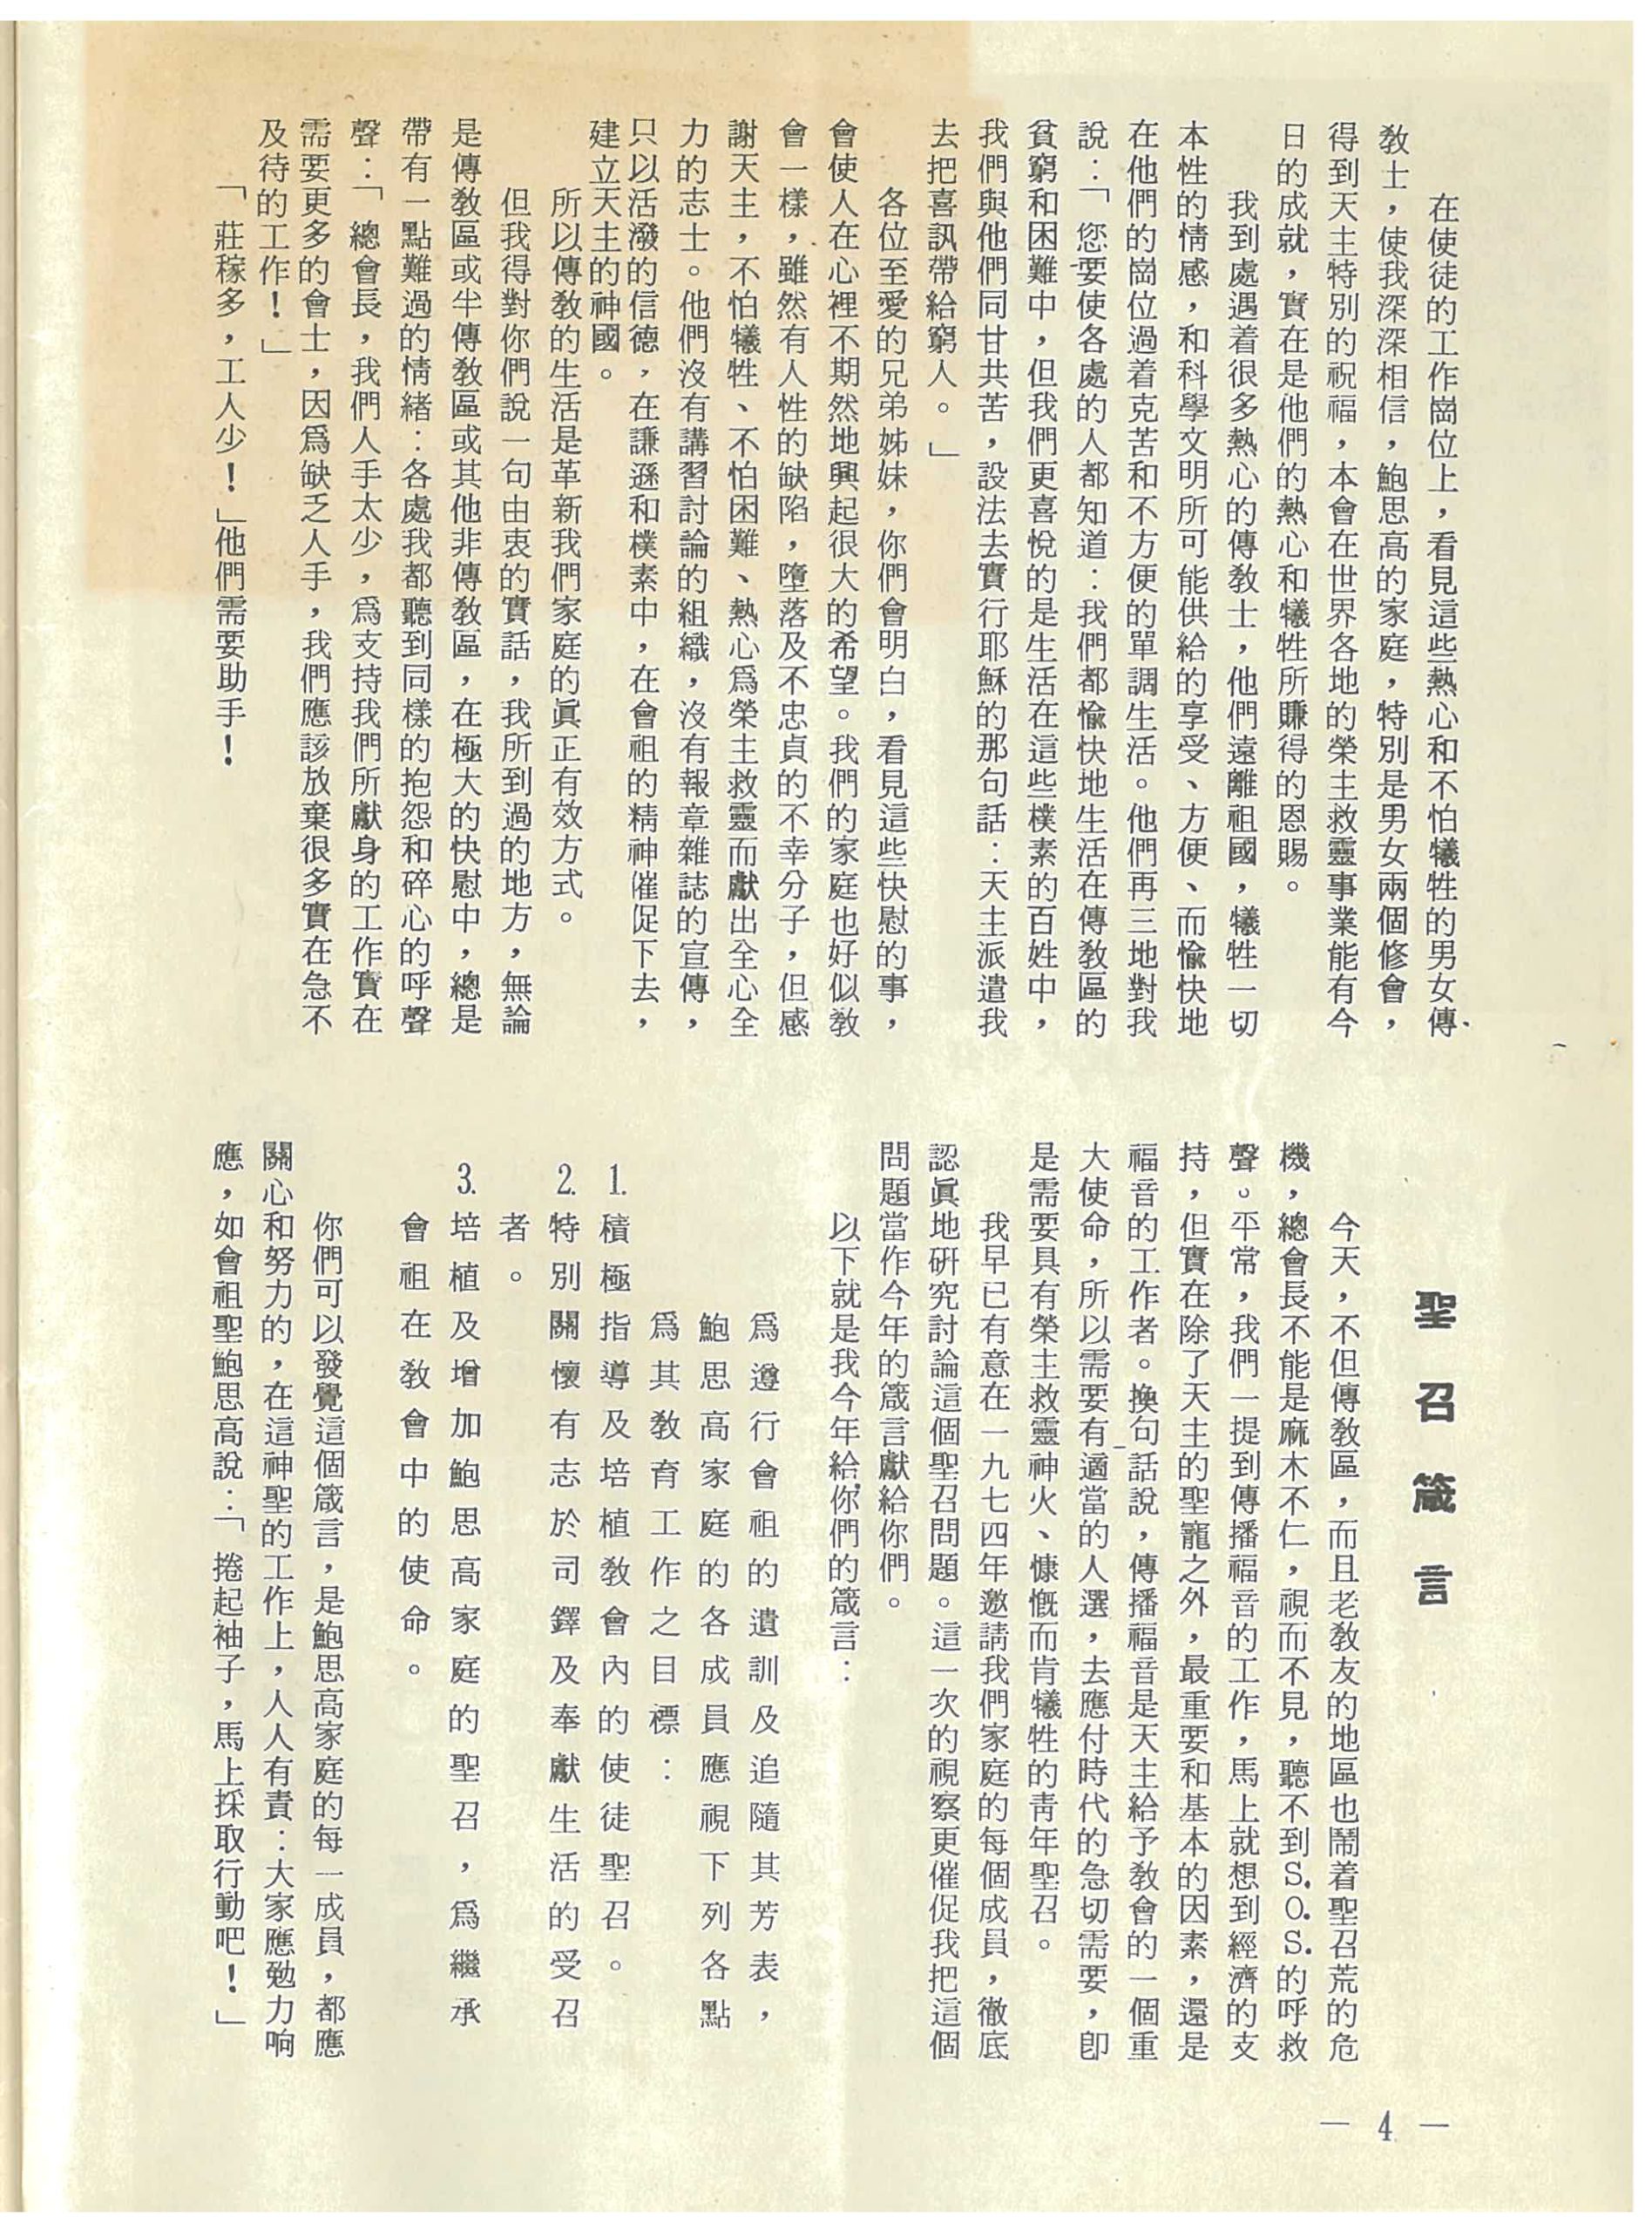 在使徒的工作崗位上，看見這些熱心和不怕犧牲的男女傳
敎士，使我深深相信，鮑思高的家庭，特別是男女兩個修會，
得到天主特別的祝福，本會在世界各地的榮主救靈事業能有今
日的成就，實在是他們的熱心和犧牲所賺得的恩賜。
我到處遇着很多熱心的傳敎士，他們遠離祖國，犧牲一切
本性的情感，和科學文明所可能供給的享受、方便、而愉快地
在他們的崗位過着克苦和不方便的單調生活。他們再三地對我
說：「您要使各處的人都知道：我們都愉快地生活在傳敎區的
貧窮和困難中，但我們更喜悅的是生活在這些樸素的百姓中，
我們與他們同甘共苦，設法去實行耶穌的那句話：天主派遣我
去把喜訊帶給窮人。」
各位至愛的兄弟姊妹，你們會明白，看見這些快慰的事，
會使人在心裡不期然地興起很大的希望。我們的家庭也好似敎
會一樣，雖然有人性的缺陷，墮落及不忠貞的不幸分子，但感
謝天主，不怕犧牲、不怕困難、熱心爲榮主救靈而獻出全心全
力的志士。他們沒有講習討論的組織，沒有報章雜誌的宣傳，
只以活潑的信德，在謙遜和樸素中，在會祖的精神催促下去，
建立天主的神國。
所以傳敎的生活是革新我們家庭的眞正有效方式。
但我得對你們說一句由衷的實話，我所到過的地方，無論
是傳敎區或半傳敎區或其他非傳敎區，在極大的快慰中，總是
帶有一點難過的情緒：各處我都聽到同樣的抱怨和碎心的呼聲
聲：「總會長，我們人手太少，爲支持我們所獻身的工作實在
需要更多的會士，因爲缺乏人手，我們應該放棄很多實在急不
及待的工作！」
「莊稼多，工人少！」他們需要助手！
聖召箴言
今天，不但傳敎區，而且老敎友的地區也鬧着聖召荒的危
機，總會長不能是麻木不仁，視而不見，聽不到S.O.S.的呼救
聲。平常，我們一提到傳播福音的工作，馬上就想到經濟的支
持，但實在除了天主的聖寵之外，最重要和基本的因素，還是
福音的工作者。換句話說，傳播福音是天主給予敎會的一個重
大使命，所以需要有適當的人選，去應付時代的急切需要，卽
是需要具有榮主救靈神火、慷慨而肯犧牲的靑年聖召。
我早已有意在一九七四年邀請我們家庭的每個成員，徹底
認眞地研究討論這個聖召問題。這一次的視察更催促我把這個
問題當作今年的箴言獻給你們。
以下就是我今年給你們的箴言：
爲遵行會祖的遺訓及追隨其芳表，
鮑思高家庭的各成員應視下列各點
爲其敎育工作之目標：
1.積極指導及培植敎會內的使徒聖召。
2.特別關懷有志於司鐸及奉獻生活的受召
者。
3.培植及增加鮑思高家庭的聖召，爲繼承
會祖在敎會中的使命。
你們可以發覺這個箴言，是鮑思高家庭的每一成員，都應
關心和努力的，在這神聖的工作上，人人有責：大家應勉力响
應，如會祖聖鮑思高說：「捲起袖子，馬上採取行動吧！」
— 4 —